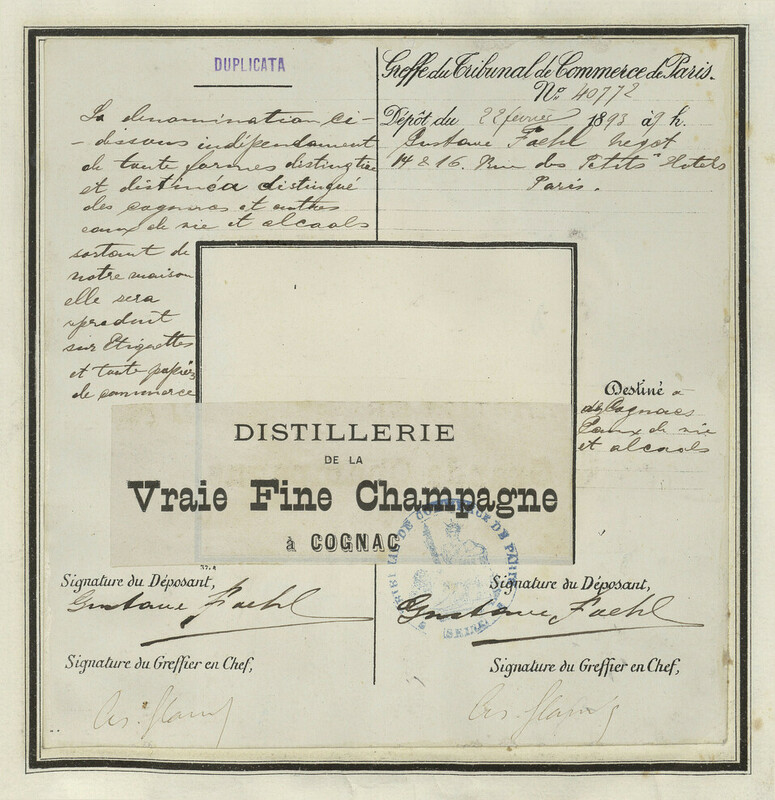 DUPLICATA
La denomination ci-
-dessous indépendament
de toute formes distinctive
et distinéa distingue
des cognacs et autres
eaux de vie et alcools
sortant de
notre maison
elle sera
reproduit
sur Etiquettes
et toute papiers
de commerce
Greffe du Tribunal de Commerce de Paris.
No. 40772
Dépôt du 22 février 1893 à 9 h.
Gustave Faehl negot
14 & 16. Rue des Petits Hotels
Paris.
Destiné à
des Cognacs
Eaux de vie
et alcools
DISTILLERIE
DE LA
Vraie Fine Champagne
à COGNAC
TRIBUNAL DE COMMERCE DE PARIS
(SEINE)
Signature du Déposant,
Gustave Faehl
Signature du Greffier en Chef,
Signature du Déposant,
Gustave Faehl
Signature du Greffier en Chef,